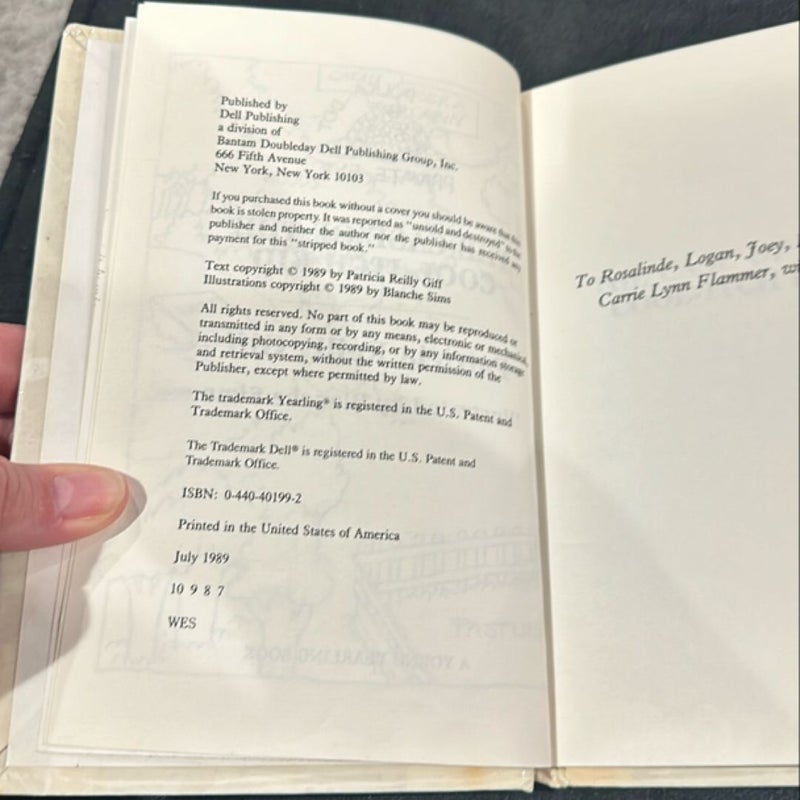 Published by
Dell Publishing
a division of
Bantam Doubleday Dell Publishing Group, Inc.
666 Fifth Avenue
New York, New York 10103
If you purchased this book without a cover you should be aware that this
book is stolen property. It was reported as "unsold and destroyed" to the
publisher and neither the author nor the publisher has received any
payment for this "stripped book."
Text copyright © 1989 by Patricia Reilly Giff
Illustrations copyright © 1989 by Blanche Sims
All rights reserved. No part of this book may be reproduced or
transmitted in any form or by any means, electronic or mechanical,
including photocopying, recording, or by any information storage
and retrieval system, without the written permission of the
Publisher, except where permitted by law.
The trademark Yearling® is registered in the U.S. Patent and
Trademark Office.
The Trademark Dell® is registered in the U.S. Patent and
Trademark Office.
ISBN: 0-440-40199-2
Printed in the United States of America
July 1989
10 9 8 7
WES
To Rosalinde, Logan, Joey,
Carrie Lynn Flammer,